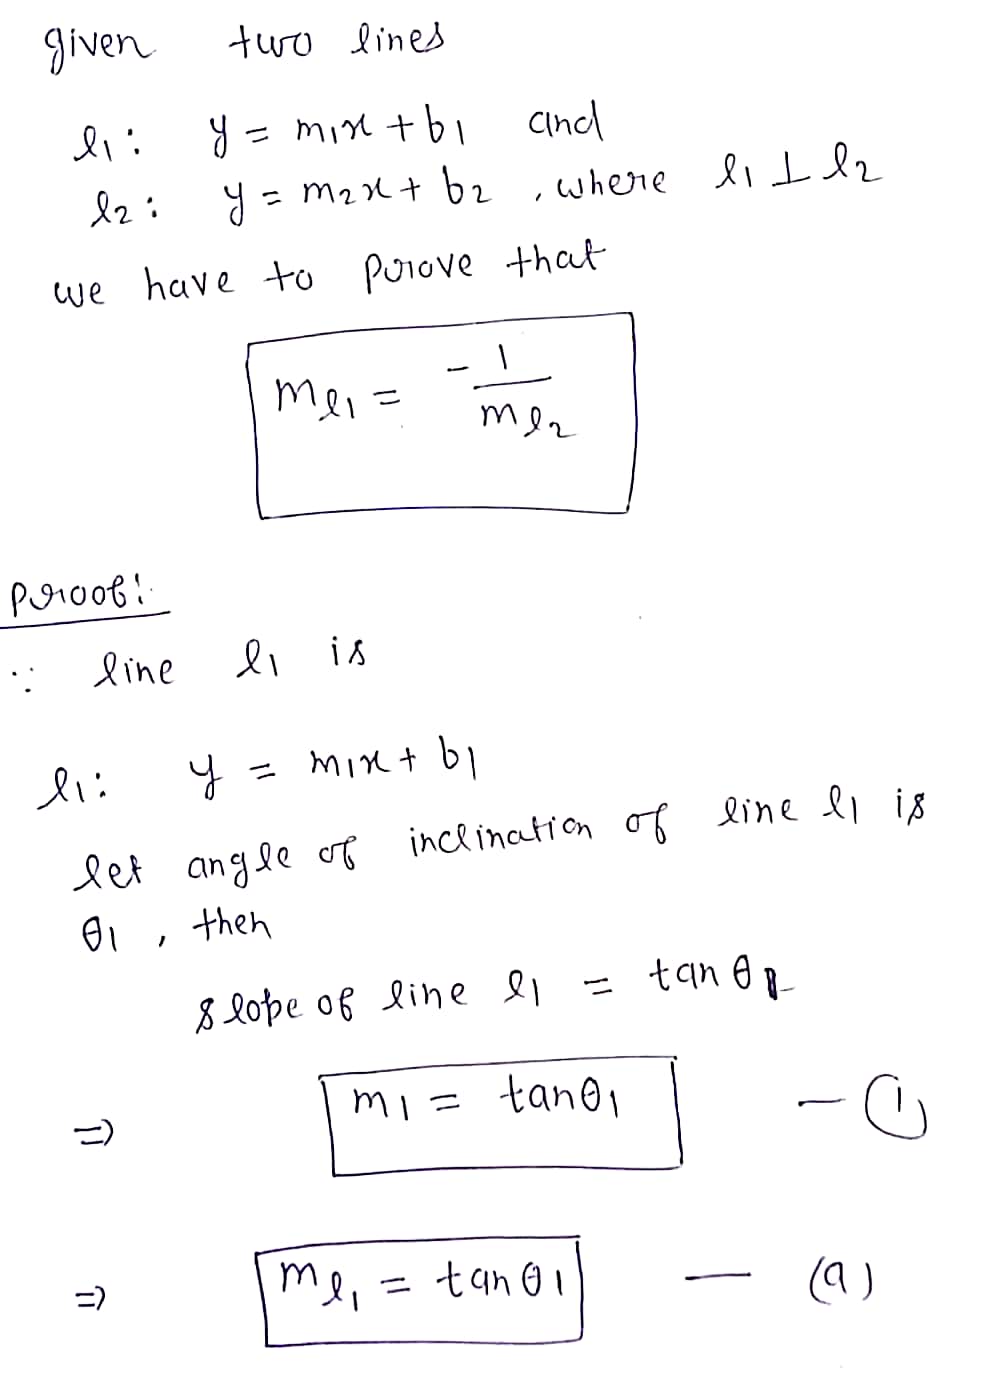 given two lines
l1: y = m1x + b1 and
l2: y = m2x + b2 , where l1 ⊥ l2
we have to prove that
ml1 = -1/ml2
proof:
∵ line l1 is
l1: y = m1x + b1
let angle of inclination of line l1 is
θ1 , then
slope of line l1 = tan θ1
⇒ m1 = tanθ1 - ①
⇒ ml1 = tanθ1 - (a)